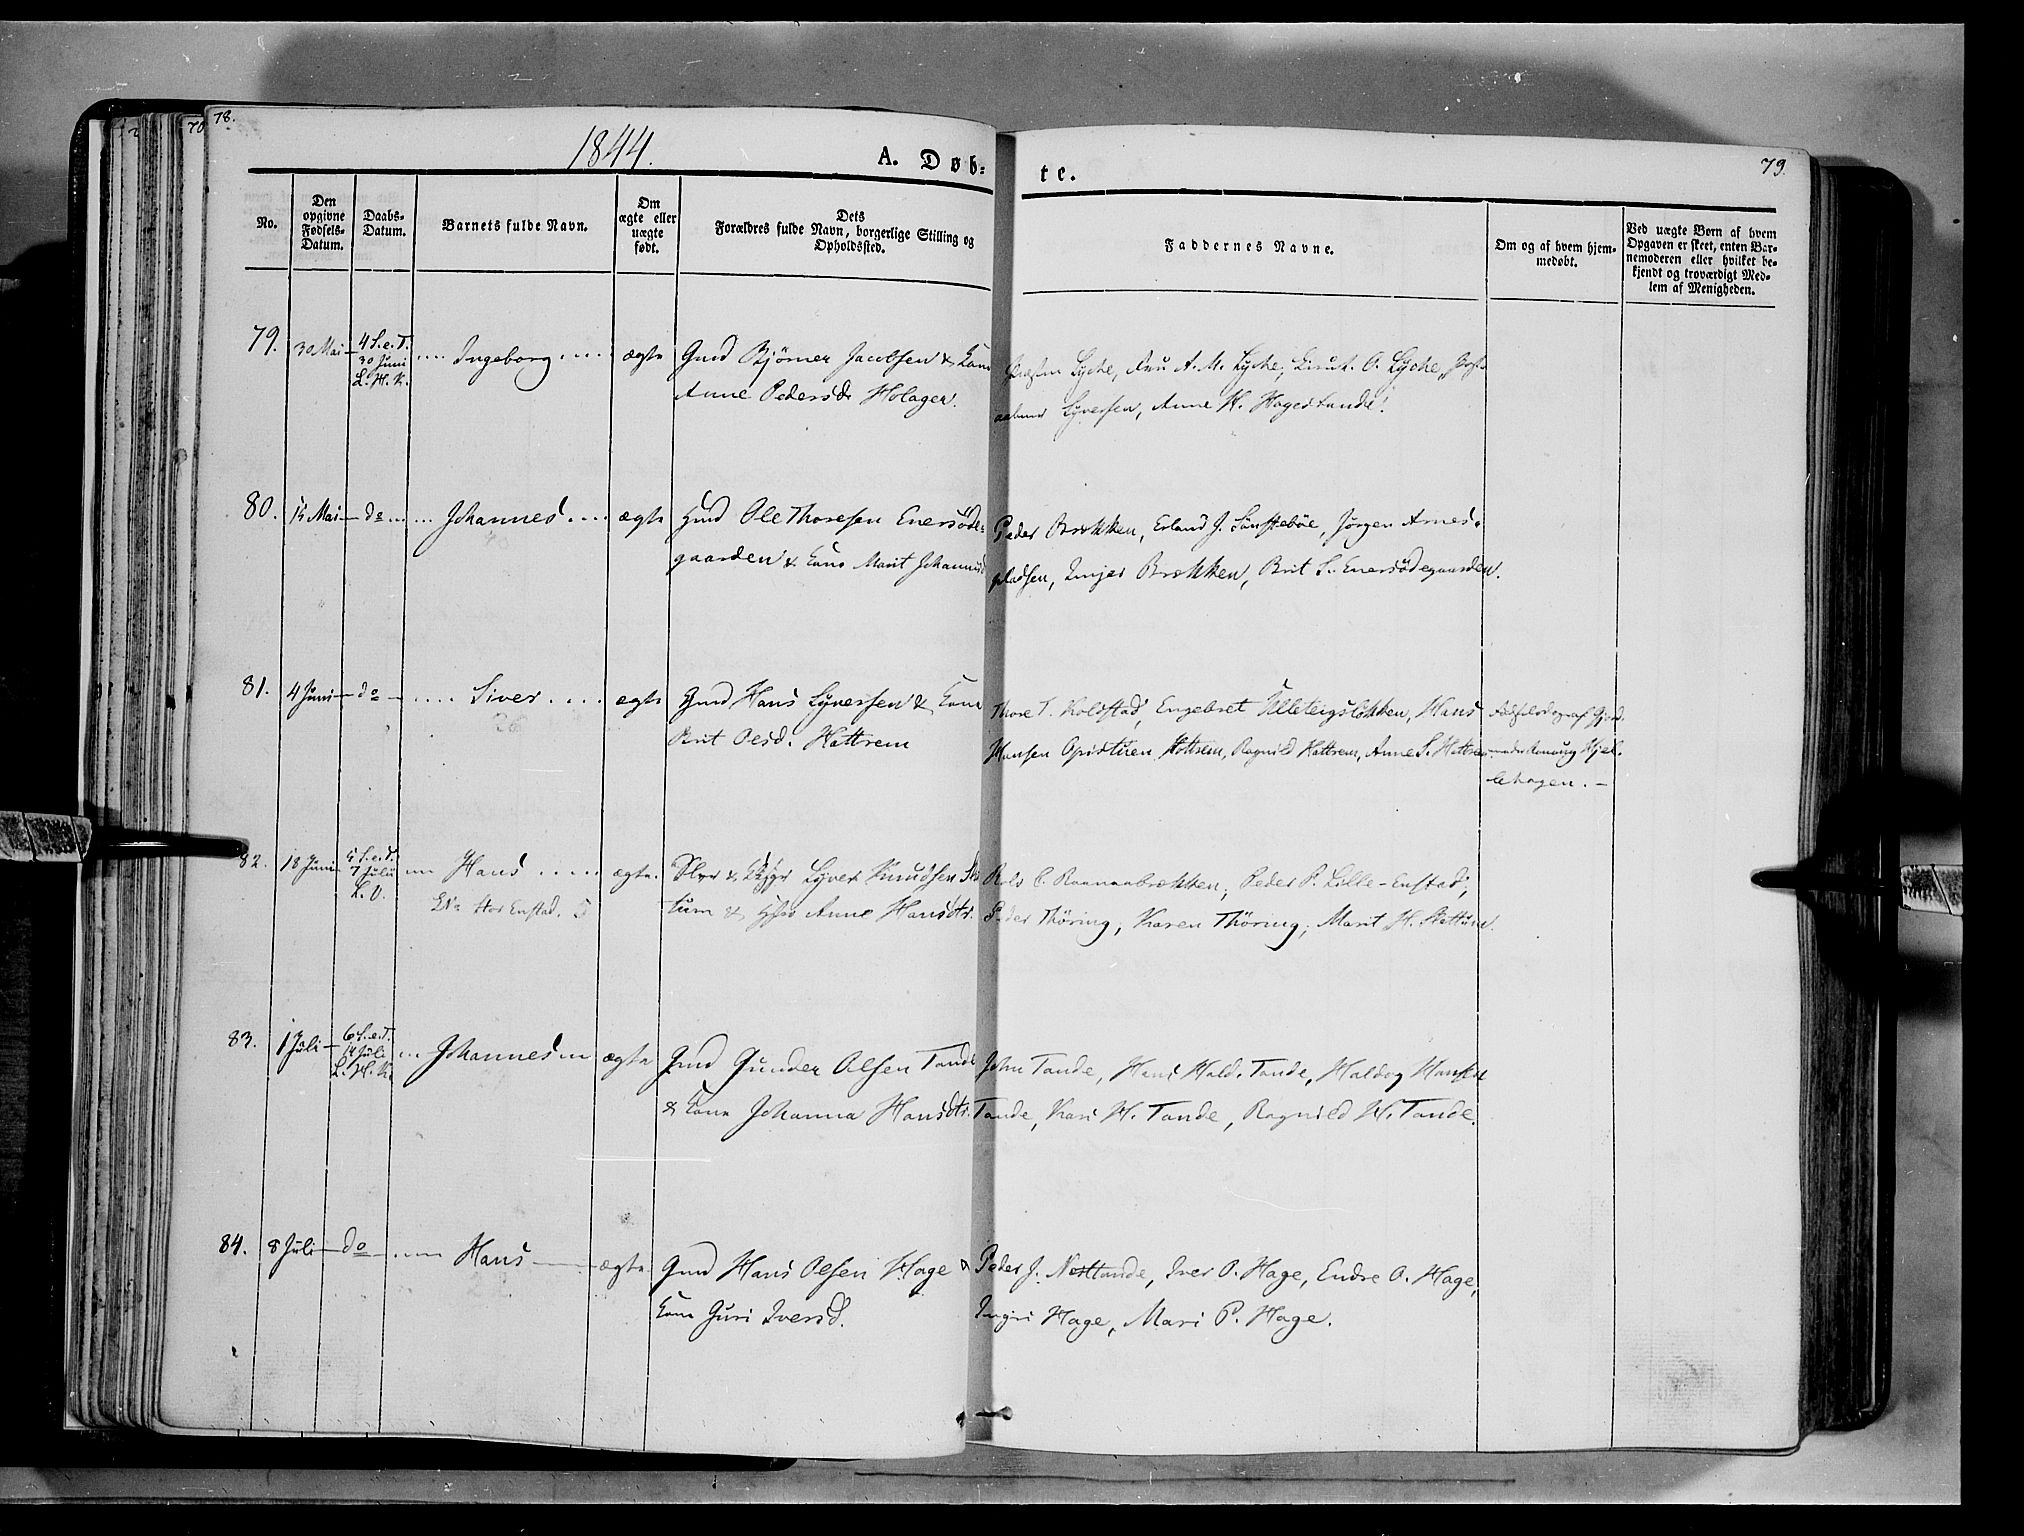 78.
70
1844.
A. Døb-
te.
79.
No.
Den opgivne Fødsels-Datum.
Daabs-Datum.
Barnets fulde Navn.
Om ægte eller uægte født.
Dets Forældres fulde Navn, borgerlige Stilling og Opholdssted.
Faddernes Navne.
Om og af hvem hjem-medøbt.
Ved uægte Born af hvem Opgaven er skeet, enten Bar-nemoderen eller hvilket be-kjendt og troværdigt Med-lem af Menigheden.
79. 30 Mai 4 S.e.T. 30 Juni L. H. K. Ingeborg ægte Gmd Björner Jacobsen & Kone
Anne Pedersd. Holager.
Lyche, Fru A. M. Lyche, Lieut. O. Lyche,
Syversen, Anne H. Hagestande.
80. 15 Mai do Johannes ægte Hmd Ole Thoresen Enersöde-
gaarden & Kone Marit Johannesd
Peder Brækken, Erland J. Sönstebøe, Jörgen Arnes-
pladsen, Imjer Brækken, Brit S. Enersödegaarden.
81. 4 Juni do Siver ægte Gmd Hans Syversen & Kone
Brit Olesd. Hattrem
Thore T. Kolstad, Engebret Ulleteigslökken, Hans
Hansen Opistuen Hattrem, Ragnild Hattrem, Anne S. Hattrem
af Gjord-
moder Kjel-
lehagen.
82. 18 Juni 5 S.e.T. 7 Juli L. O. Hans ægte. & Syver Knudsen
Stor Enstad.
tum & Anne Hansdtr.
Rols C. Raanaabrækken, Peder P. Lille-Enstad,
Peder Thöring, Karen Thöring, Marit H. Slettum.
83. 1 Juli 6 S.e.T. 14 Juli L. H. K. Johannes ægte Gmd Gunder Olsen Tande
& Kone Johanna Hansdtr.
John Tande, Hans Hald. Tande, Haldog Hansen
Tande, Kari H. Tande, Ragnild H. Tande.
84. 8 Juli do Hans ægte Gmd Hans Olsen Hage &
Kone Guri Iversd.
Peder J. Nortlande, Iver O. Hage, Endre O. Hage,
Ingri Hage, Mari P. Hage.